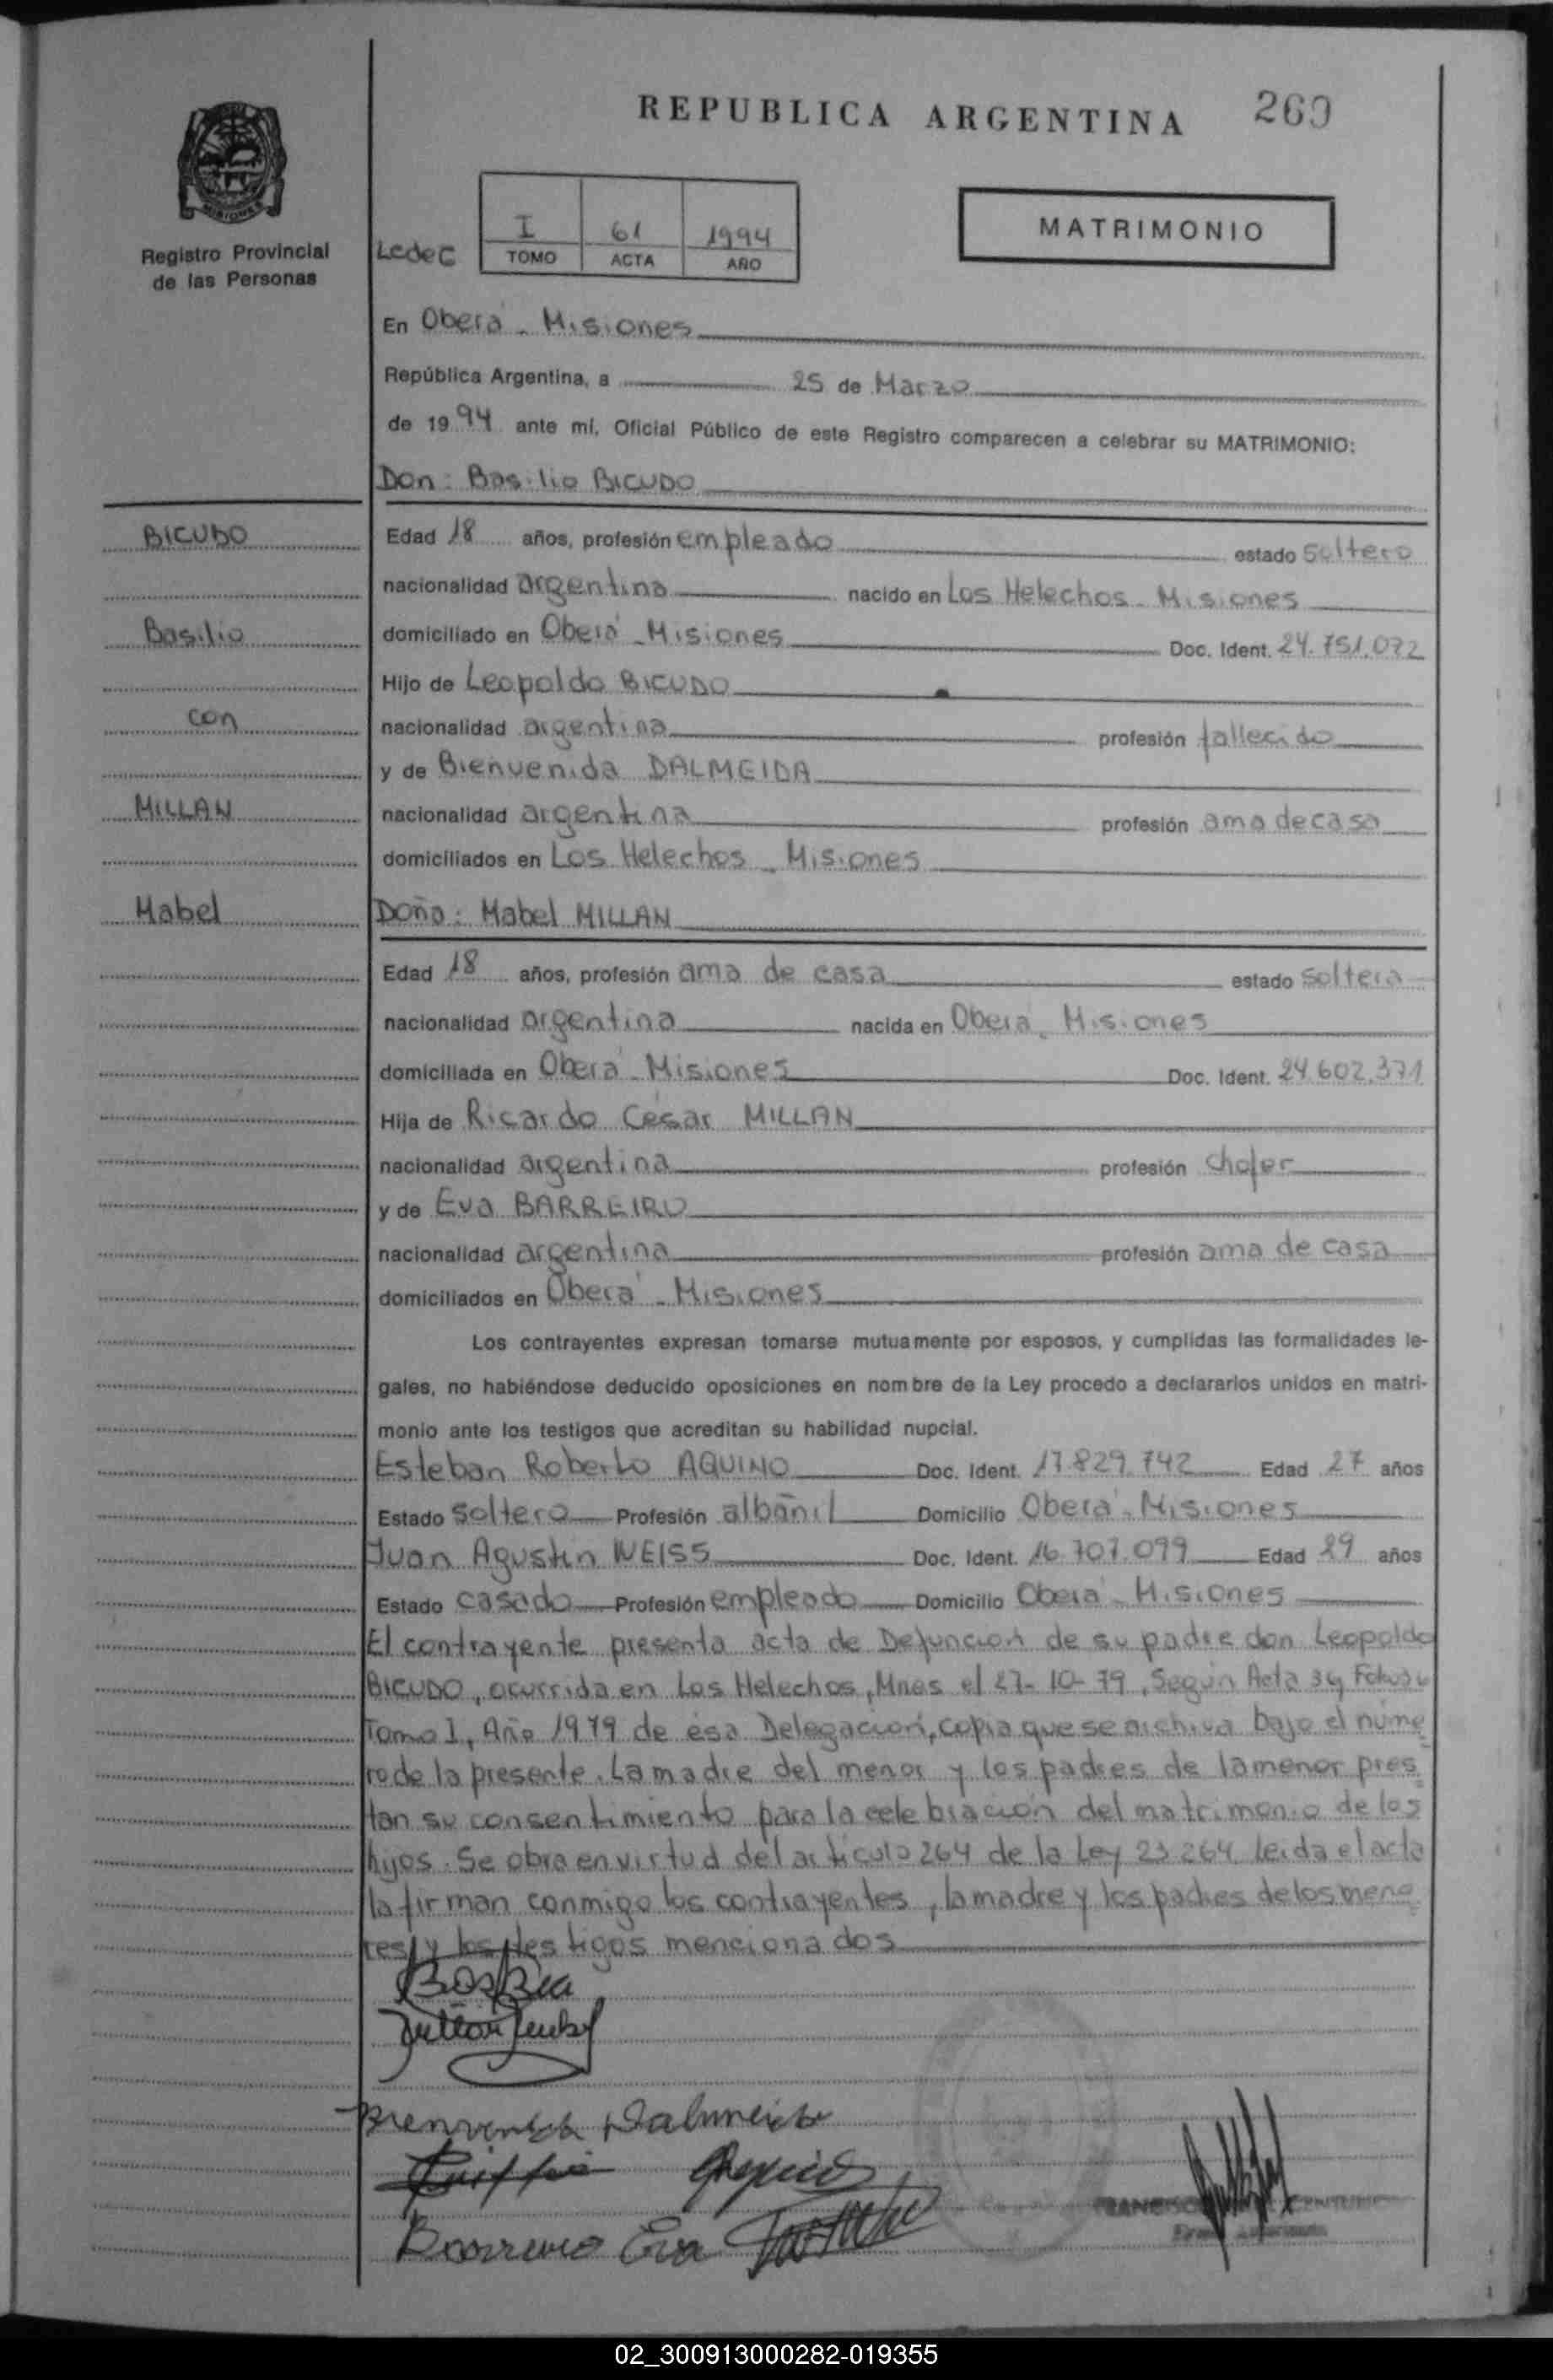 REPUBLICA ARGENTINA 269
MISIONES
Registro Provincial
de las Personas
Ledec
I 61 1994
TOMO ACTA AÑO
MATRIMONIO
En Oberá - Misiones
República Argentina, a 25 de Marzo
de 1994 ante mí, Oficial Público de este Registro comparecen a celebrar su MATRIMONIO:
Don: Basilio BICUDO
BICUDO
Basilio
con
MILLAN
Mabel
Edad 18 años, profesión empleado estado soltero
nacionalidad argentina nacido en Los Helechos - Misiones
domiciliado en Oberá - Misiones Doc. Ident. 24.751.072
Hijo de Leopoldo BICUDO
nacionalidad argentina profesión fallecido
y de Bienvenida DALMEIDA
nacionalidad argentina profesión ama de casa
domiciliados en Los Helechos - Misiones
Doña: Mabel MILLAN
Edad 18 años, profesión ama de casa estado soltera
nacionalidad argentina nacida en Oberá - Misiones
domiciliada en Oberá - Misiones Doc. Ident. 24.602.371
Hija de Ricardo César MILLAN
nacionalidad argentina profesión chofer
y de Eva BARREIRO
nacionalidad argentina profesión ama de casa
domiciliados en Oberá - Misiones
Los contrayentes expresan tomarse mutuamente por esposos, y cumplidas las formalidades le-
gales, no habiéndose deducido oposiciones en nombre de la Ley procedo a declararlos unidos en matri-
monio ante los testigos que acreditan su habilidad nupcial.
Esteban Roberto AQUINO Doc. Ident. 17.829.742 Edad 27 años
Estado soltero Profesión albañil Domicilio Oberá - Misiones
Juan Agustin WEISS Doc. Ident. 16.707.099 Edad 29 años
Estado casado Profesión empleado Domicilio Oberá - Misiones
El contrayente presenta acta de Defunción de su padre don Leopoldo
BICUDO, ocurrida en Los Helechos, Mnes el 27-10-79, Según Acta 34, Folio
Tomo I, Año 1979 de esa Delegación, copia que se archiva bajo el núme
ro de la presente. La madre del menor y los padres de la menor pres
tan su consentimiento para la celebración del matrimonio de los
hijos. Se obra en virtud del artículo 264 de la Ley 23.264. Leida el acta
la firman conmigo los contrayentes, la madre y los padres de los meno
res, y los testigos mencionados
Bienvenida Dalmeida
Barreiro Eva
02_300913000282-019355